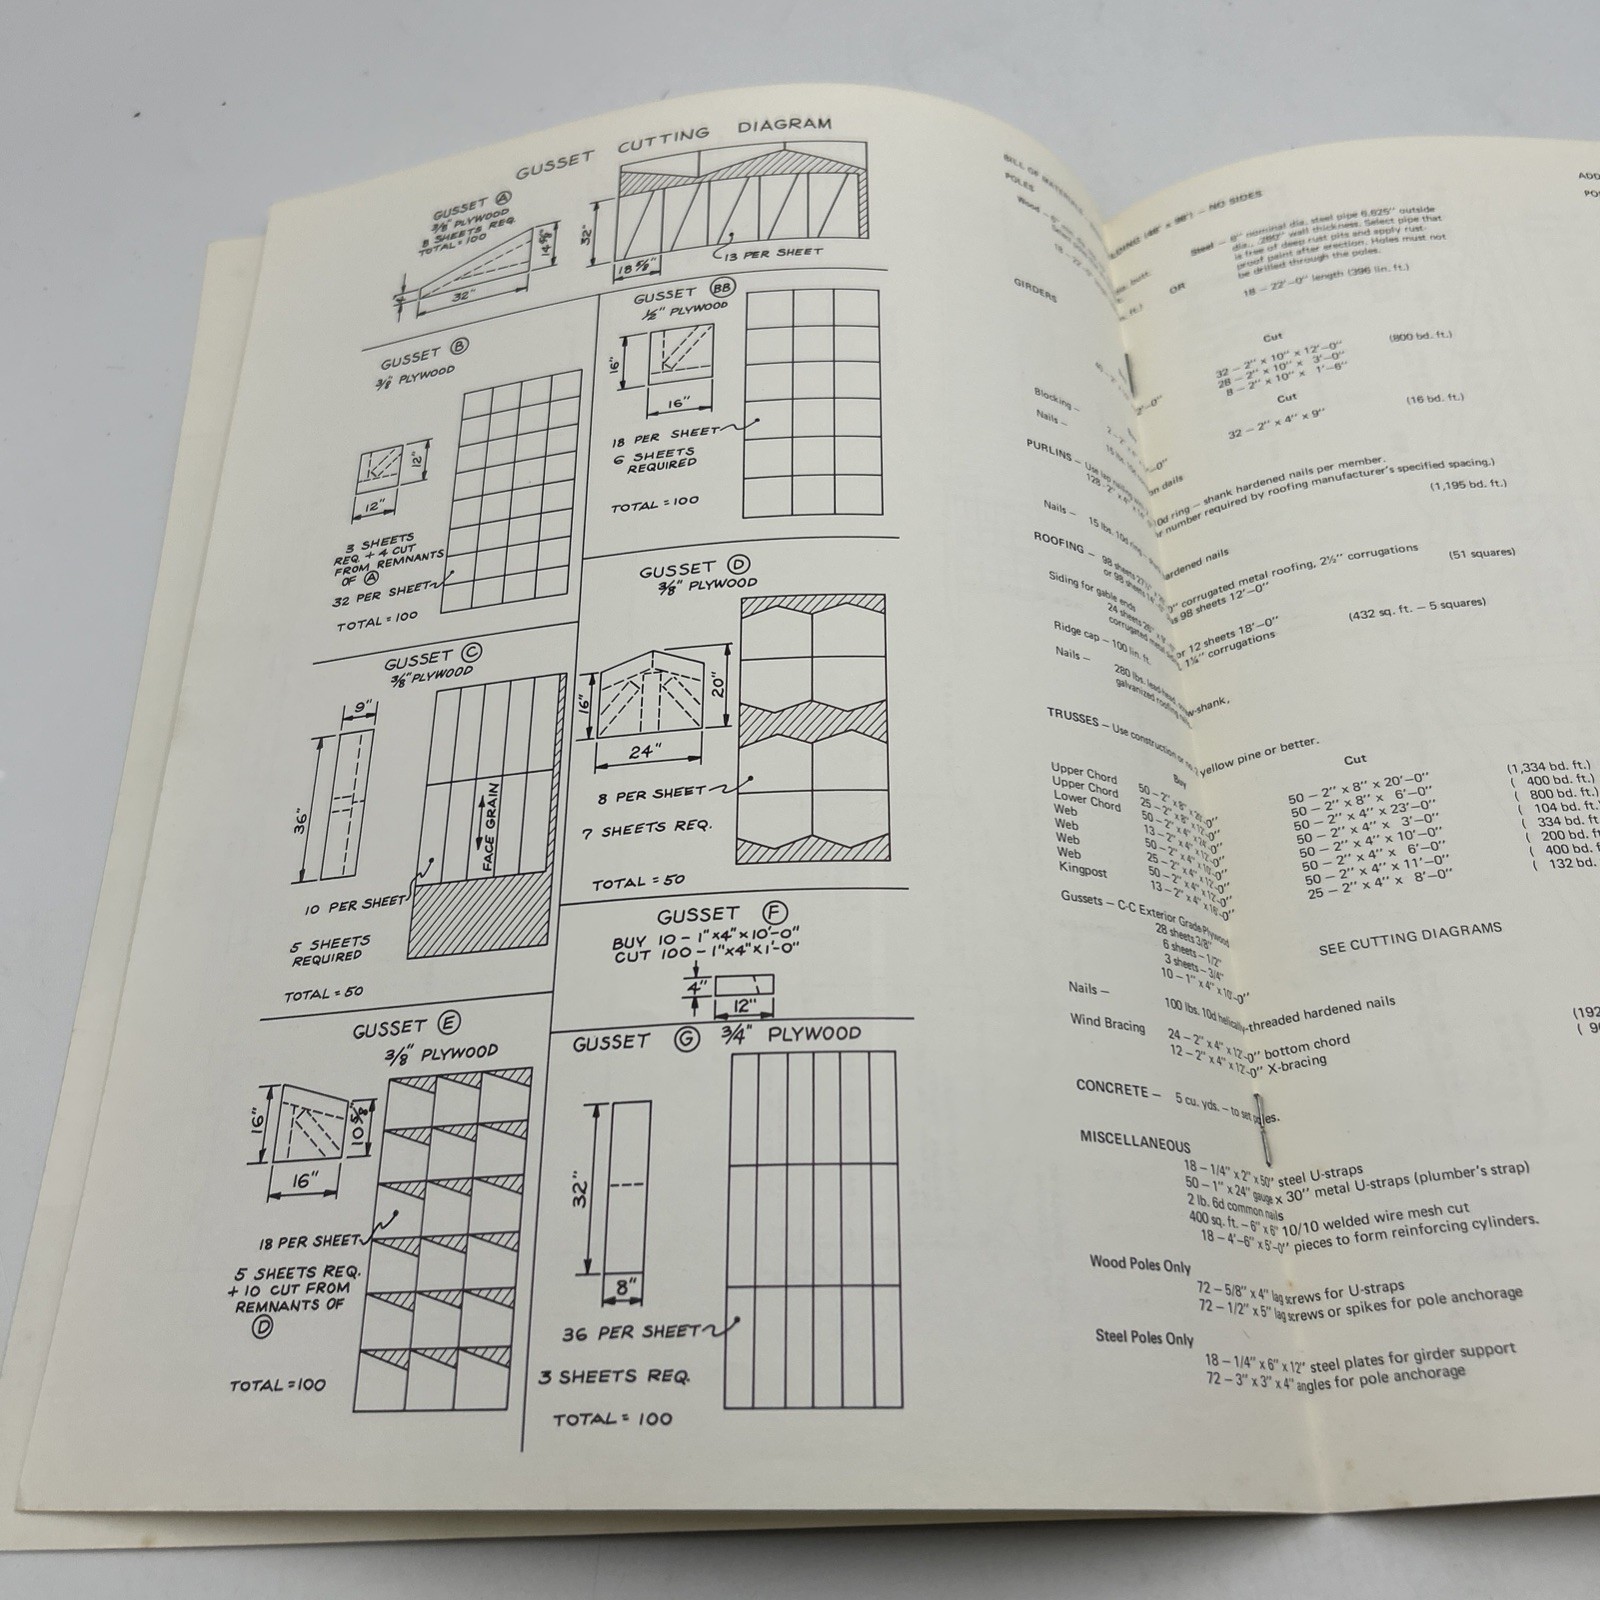 GUSSET CUTTING DIAGRAM
GUSSET A
3/8" PLYWOOD
8 SHEETS REQ.
TOTAL = 100
14 5/8"
32"
32"
18 5/8"
13 PER SHEET
GUSSET B
3/8" PLYWOOD
12"
12"
3 SHEETS
REQ. + 4 CUT
FROM REMNANTS
OF A
32 PER SHEET
TOTAL = 100
GUSSET BB
1/2" PLYWOOD
16"
16"
18 PER SHEET
6 SHEETS
REQUIRED
TOTAL = 100
GUSSET C
3/8" PLYWOOD
9"
36"
FACE GRAIN
10 PER SHEET
5 SHEETS
REQUIRED
TOTAL = 50
GUSSET D
3/8" PLYWOOD
16"
20"
24"
8 PER SHEET
7 SHEETS REQ.
TOTAL = 50
GUSSET E
3/8" PLYWOOD
16"
10 5/8"
16"
18 PER SHEET
5 SHEETS REQ.
+ 10 CUT FROM
REMNANTS OF
D
TOTAL = 100
GUSSET F
BUY 10 – 1"x4"x10'-0"
CUT 100 – 1"x4"x1'-0"
4"
12"
GUSSET G 3/4" PLYWOOD
32"
8"
36 PER SHEET
3 SHEETS REQ.
TOTAL = 100
BILL OF MATERIALS
(48' x 96') – NO SIDES
ADD
POLES
Wood – 6"
Steel – 6" nominal dia. steel pipe 6.625" outside
dia., .280" wall thickness. Select pipe that
is free of deep rust pits and apply rust-
proof paint after erection. Holes must not
be drilled through the poles.
OR
18 – 22'-0" length (396 lin. ft.)
GIRDERS
Cut
32 – 2" x 10" x 12'-0" (800 bd. ft.)
28 – 2" x 10" x 3'-0"
8 – 2" x 10" x 1'-6"
Blocking –
Cut
32 – 2" x 4" x 9" (16 bd. ft.)
Nails –
PURLINS – Use
shank hardened nails per member.
number required by roofing manufacturer's specified spacing.)
128 – 2" x 4" (1,195 bd. ft.)
Nails – 15 lbs. 10d ring – hardened nails
ROOFING – 98 sheets corrugated metal roofing, 2½" corrugations (51 squares)
or 98 sheets 98 sheets 12'-0"
Siding for gable ends
24 sheets or 12 sheets 18'-0" (432 sq. ft. – 5 squares)
corrugated metal 1¼" corrugations
Ridge cap – 100 lin. ft.
Nails – 280 lbs. lead-head, screw-shank,
galvanized roofing nails
TRUSSES – Use construction or no. 2 yellow pine or better.
Buy Cut
Upper Chord 50 – 2" x 8" x 20'-0" 50 – 2" x 8" x 20'-0" (1,334 bd. ft.)
Upper Chord 25 – 2" x 8" x 12'-0" 50 – 2" x 8" x 6'-0" ( 400 bd. ft.)
Lower Chord 50 – 2" x 4" x 24'-0" 50 – 2" x 4" x 23'-0" ( 800 bd. ft.)
Web 13 – 2" x 4" x 12'-0" 50 – 2" x 4" x 3'-0" ( 104 bd. ft.
Web 50 – 2" x 4" x 10'-0" 50 – 2" x 4" x 10'-0" ( 334 bd. ft
Web 25 – 2" x 4" x 12'-0" 50 – 2" x 4" x 6'-0" ( 200 bd. ft
Web 50 – 2" x 4" x 12'-0" 50 – 2" x 4" x 11'-0" ( 400 bd. f
Kingpost 13 – 2" x 4" x 16'-0" 25 – 2" x 4" x 8'-0" ( 132 bd.
Gussets – C-C Exterior Grade Plywood
28 sheets 3/8"
6 sheets – 1/2" SEE CUTTING DIAGRAMS
3 sheets – 3/4"
10 – 1" x 4" x 10'-0"
Nails – 100 lbs. 10d helically-threaded hardened nails
Wind Bracing 24 – 2" x 4" x 12'-0" bottom chord (192
12 – 2" x 4" x 12'-0" X-bracing
CONCRETE – 5 cu. yds. – to set poles.
MISCELLANEOUS
18 – 1/4" x 2" x 50" steel U-straps
50 – 1" x 24" gauge x 30" metal U-straps (plumber's strap)
2 lb. 6d common nails
400 sq. ft. – 6" x 6" 10/10 welded wire mesh cut
18 – 4'-6" x 5'-0" pieces to form reinforcing cylinders.
Wood Poles Only
72 – 5/8" x 4" lag screws for U-straps
72 – 1/2" x 5" lag screws or spikes for pole anchorage
Steel Poles Only
18 – 1/4" x 6" x 12" steel plates for girder support
72 – 3" x 3" x 4" angles for pole anchorage